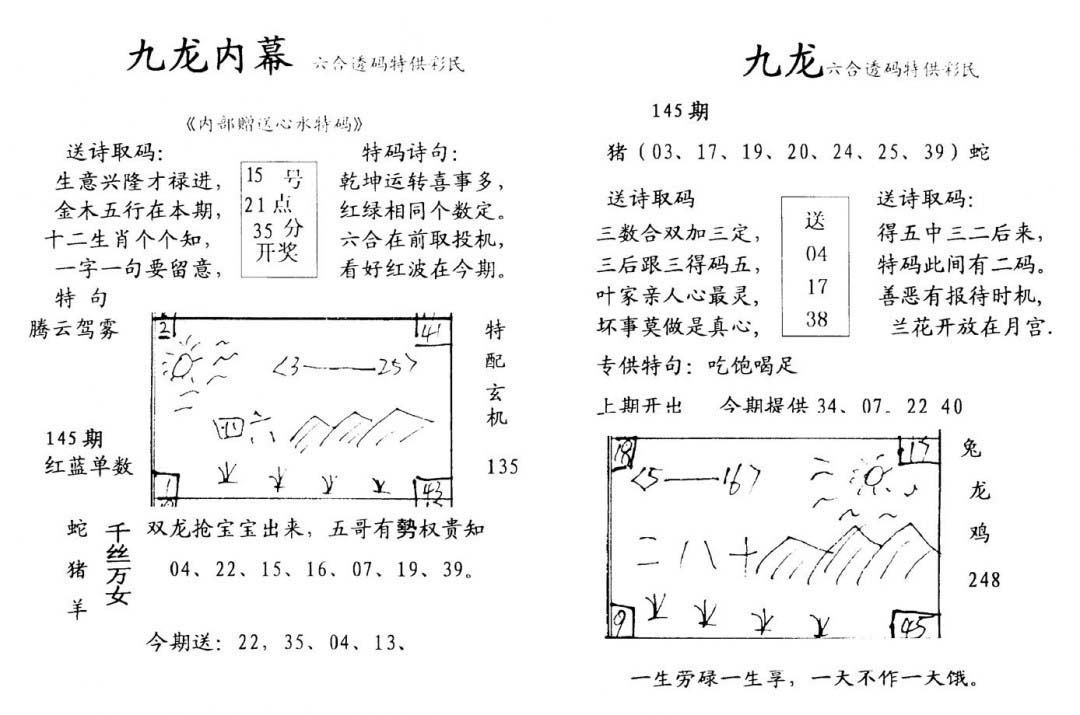 九龙内幕 六合透码特供彩民
《内部赠送心水特码》
送诗取码：
生意兴隆才禄进，
金木五行在本期，
十二生肖个个知，
一字一句要留意，
15 号
21点
35 分
开奖
特码诗句：
乾坤运转喜事多，
红绿相同个数定。
六合在前取投机，
看好红波在今期。
特 句
腾云驾雾
145期
红蓝单数
2
41
<3——25>
四六
1
43
特
配
玄
机
135
蛇
猪
羊
千丝万女
双龙抢宝宝出来，五哥有勢权贵知
04、22、15、16、07、19、39。
今期送：22，35、04、13、
九龙六合透码特供彩民
145期
猪（03、17、19、20、24、25、39）蛇
送诗取码
三数合双加三定，
三后跟三得码五，
叶家亲人心最灵，
坏事莫做是真心，
送
04
17
38
送诗取码：
得五中三二后来，
特码此间有二码。
善恶有报待时机，
兰花开放在月宫.
专供特句：吃饱喝足
上期开出 今期提供34、07、22 40
18
17
<5——16>
二八十
9
45
兔
龙
鸡
248
一生劳碌一生享，一天不作一天饿。